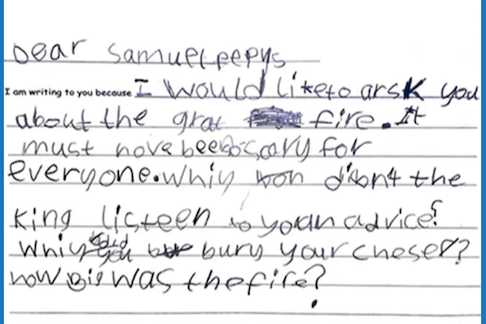 Dear Samuel pepys
I am writing to you because I would like to arsk you
about the grat fire. It
must have been scary for
everyone. Whiy didont the
King listeen to your advice?
Whiy did you bury your cheser?
how Big was the fire?